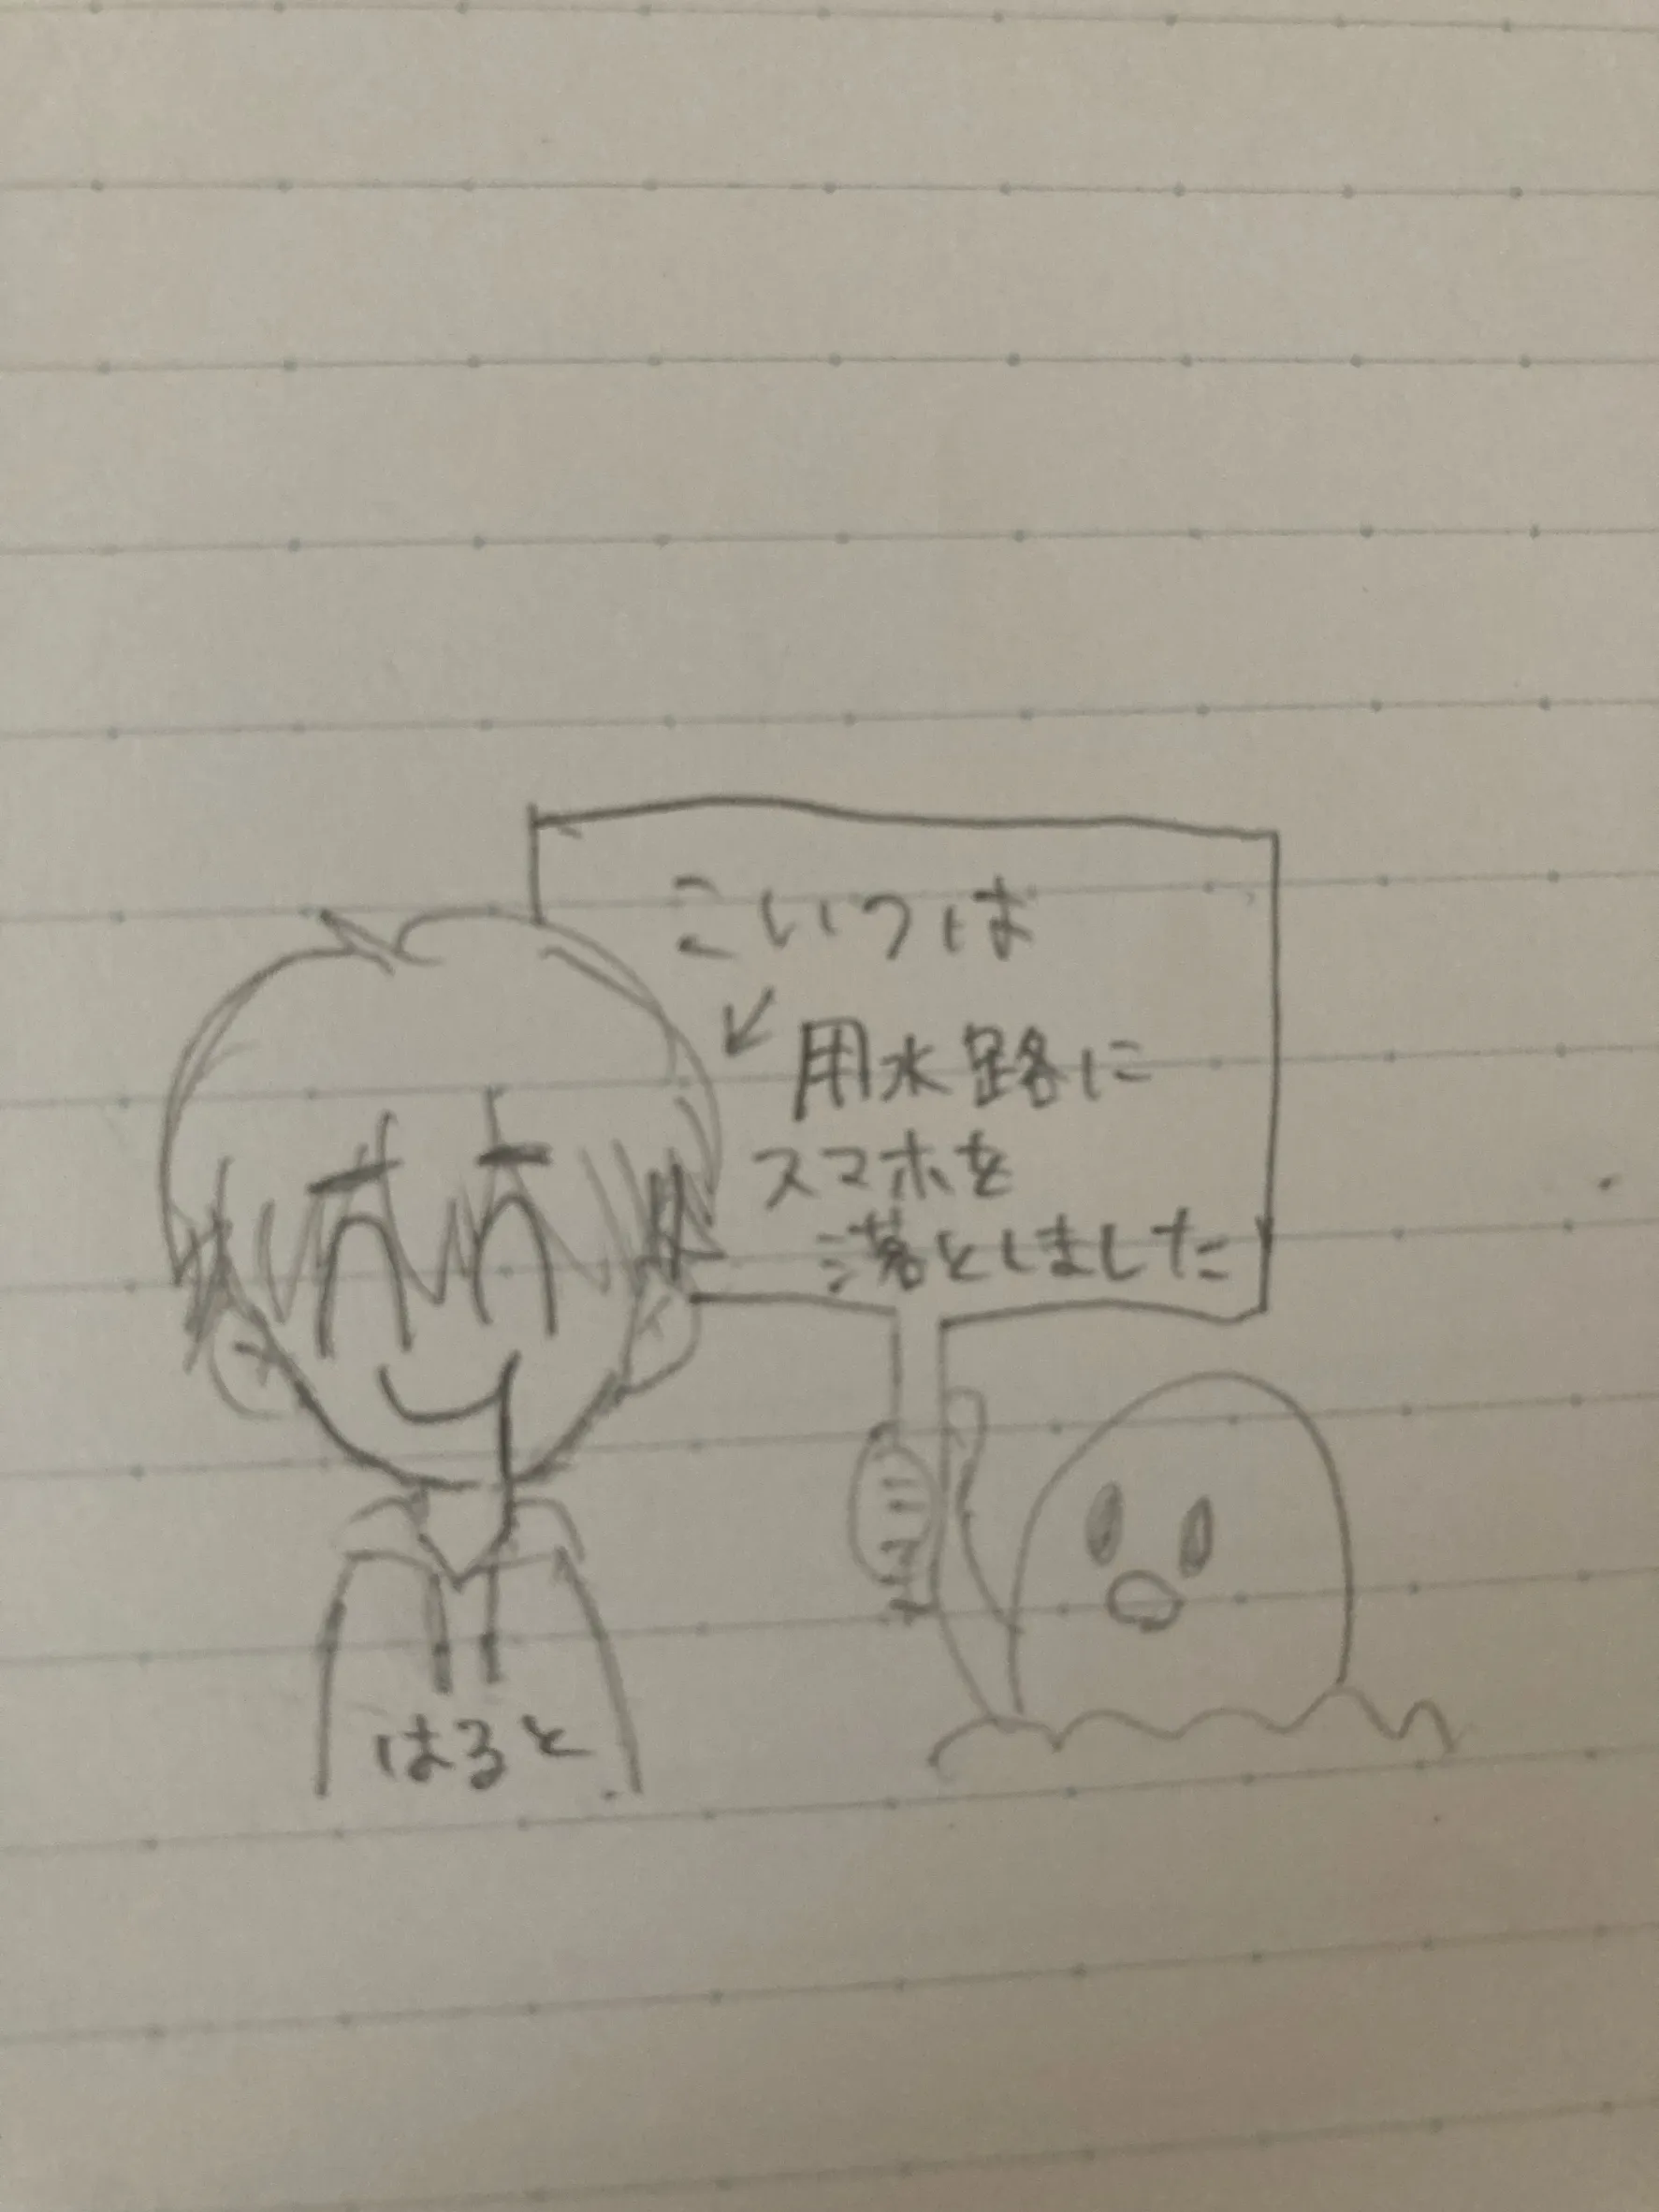 こいつは
↙ 用水路に
スマホを
落としました
はると